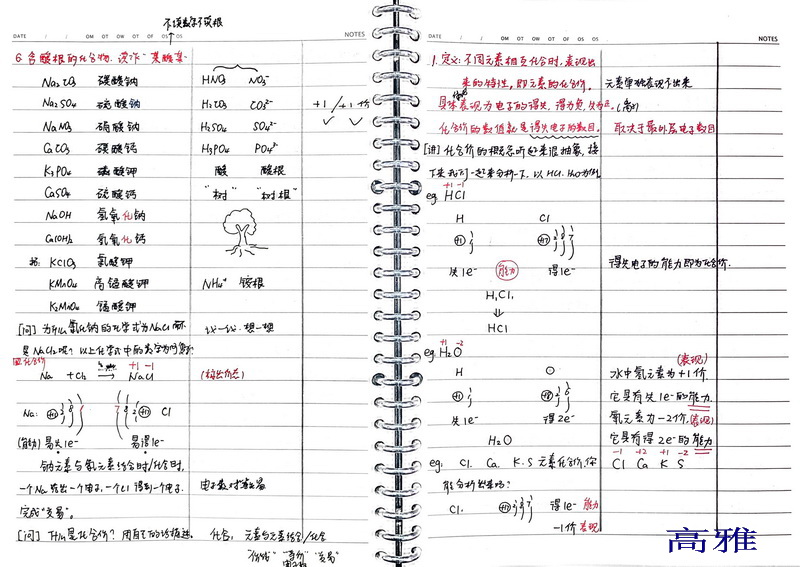 DATE / / OM OT OW OT OF OS OS NOTES
6.含酸根的化合物. 读作"某酸某"
Na₂CO₃ 碳酸钠 HNO₃ NO₃⁻
Na₂SO₄ 硫酸钠 H₂CO₃ CO₃²⁻ +1 / +1价
NaNO₃ 硝酸钠 H₂SO₄ SO₄²⁻
CaCO₃ 碳酸钙 H₃PO₄ PO₄³⁻
K₃PO₄ 磷酸钾 酸 酸根
CaSO₄ 硫酸钙 "树" "树根"
NaOH 氢氧化钠
Ca(OH)₂ 氢氧化钙
KClO₃ 氯酸钾
KMnO₄ 高锰酸钾 NH₄⁺ 铵根
K₂MnO₄ 锰酸钾
[问] 为什么氯化钠的化学式为NaCl而 找一找. 想一想
是NaCl₂呢? 以上化学式中的数字为何
化合价
+1 -1
Na + Cl₂ → NaCl
Na: +11 2 8 1 +17 Cl
(能力) 易失1e⁻ 易得1e⁻
钠元素与氯元素结合时/化合时,
一个Na给出一个电子, 一个Cl得到一个电子. 电子
完成"交易".
[问] 什么是化合价? 用自己的话描述. 化合: 元素与元素结合/化合
"价钱" "交易"
DATE / / OM OT OW OT OF OS OS NOTES
1.定义: 不同元素相互化合时, 表现出
来的特性, 即元素的化合价. 元素单独表现不出来
具体表现为电子的得失, 得为负, 失为正.
化合价的数值就是得失电子的数目. 取决于最外层电子数目
[讲] 化合价的概念听起来很抽象, 接
下来我们一起来分析一下. 以HCl. H₂O为例
+1 -1
eg. HCl
H Cl
+1 1 +17 2 8 7
失1e⁻ 能力 得1e⁻ 得失电子的能力即为化合价.
H₁Cl₁
⇓
HCl
+1 -2
eg. H₂O (表现)
H O 水中氢元素为+1价.
+1 1 +8 2 6 它具有失1e⁻的能力.
失1e⁻ 得2e⁻ 氧元素为-2价. (表现)
H₂O 它具有得2e⁻的能力
-1 +2 +1 -2
eg. Cl. Ca. K. S元素化合价, 你 Cl Ca K S
能分析出来吗?
Cl. +17 2 8 7 得1e⁻ 能力
-1价 表现
高雅